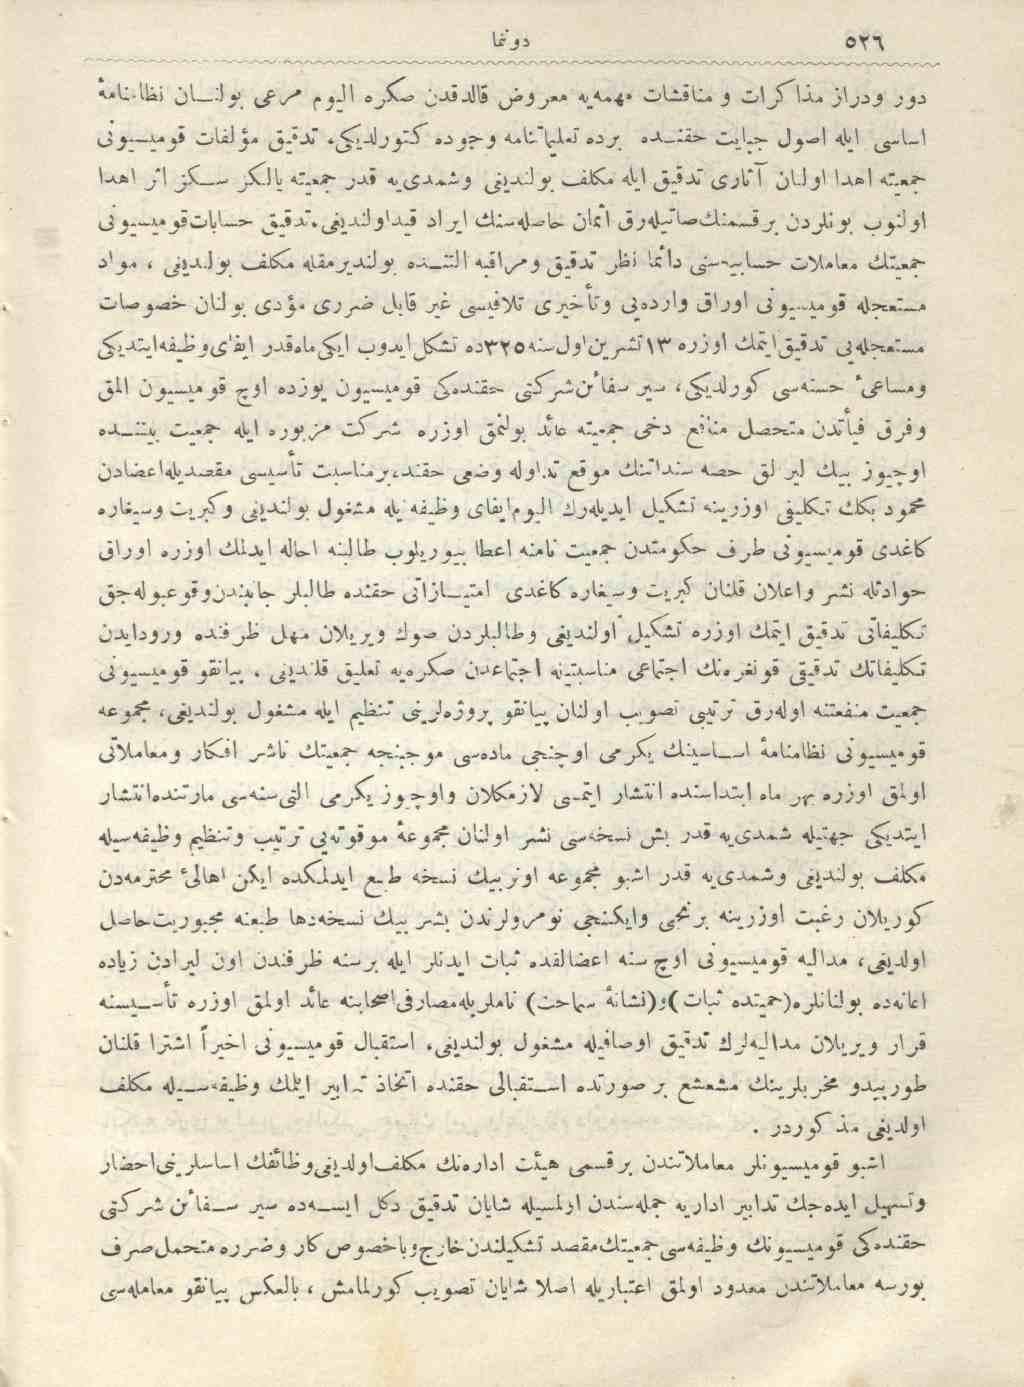 ٥٢٦
دوننما
دور ودراز مذاكرات و مناقشات مهمه‌یه معروض قالدقدن صكره الیوم مرعی بولنــان نظامنامهٔ
اساسی ایله اصول جبایت حقنــده برده تعلیماتنامه وجوده كتورلدیكی، تدقیق مؤلفات قومیسیونی
جمعیته اهدا اولنان آثاری تدقیق ایله مكلف بولندیغی وشمدی‌یه قدر جمعیته یالكز ســكز اثر اهدا
اولنوب بونلردن برقسمنك‌صاتیله‌رق اثمان حاصله‌سنك ایراد قیداولندیغی،تدقیق حسابات‌قومیسیونی
جمعیتك معاملات حسابیه‌سنی دائما نظر تدقیق ومراقبه التنــده بولندیرمقله مكلف بولندیغی ، مواد
مستعجله قومیسیونی اوراق وارده‌یی وتأخیری تلافیسی غیر قابل ضرری مؤدی بولنان خصوصات
مستعجله‌یی تدقیق‌ایتمك اوزره ١٣تشرین‌اول‌سنه٣٢٥ده تشكل‌ایدوب ایكی‌ماه‌قدر ایفای‌وظیفه‌ایتدیكی
ومساعیٔ حسنه‌سی كورلدیكی، سیر سفائن‌شركتی حقنده‌كی قومیسیون یوزده اوچ قومیسیون المق
وفرق فیأتدن متحصل منافع دخی جمعیته عائد بولنمق اوزره شركت مزبوره ایله جمعیت بیننــده
اوچیوز بیك لیرالق حصه سنداتنك موقع تداوله وضعی حقنده،برمناسبت تأسیسی مقصدیله‌اعضادن
محمود بكك تكلیفی اوزرینه تشكیل ایدیله‌رك الیوم‌ایفای وظیفه‌یله مشغول بولندیغی وكبریت وسیغاره
كاغدی قومیسیونی طرف حكومتدن جمعیت نامنه اعطا بیوریلوب طالبنه احاله ایدلمك اوزره اوراق
حوادثله نشر واعلان قلنان كبریت وسیغاره كاغدی امتیــازاتی حقنده طالبلر جانبندن‌وقوعبوله‌جق
تكلیفاتی تدقیق ایتمك اوزره تشكیل اولندیغی وطالبلردن صوك ویریلان مهل ظرفنده ورودایدن
تكلیفاتك تدقیقی قونغره‌نك اجتماعی مناسبتیله اجتماعدن صكره‌یه تعلیق قلندیغی ، پیانقو قومیسیونی
جمعیت منفعتنه اوله‌رق ترتیبی تصویب اولنان پیانقو پروژه‌لرینی تنظیم ایله مشغول بولندیغی، مجموعه
قومیسیونی نظامنامهٔ اســاسینك یكرمی اوچنجی ماده‌سی موجبنجه جمعیتك ناشر افكار ومعاملاتی
اولمق اوزره بهر ماه ابتداسنده انتشار ایتمسی لازمكلان واوچیوز یكرمی التی‌سنه‌سی مارتنده‌انتشار
ایتدیكی جهتیله شمدی‌یه قدر بش نسخه‌سی نشر اولنان مجموعهٔ موقوته‌یی ترتیب وتنظیم وظیفه‌سیله
مكلف بولندیغی وشمدی‌یه قدر اشبو مجموعه اونربیك نسخه طبع ایدلمكده ایكن اهالیٔ محترمه‌دن
كوریلان رغبت اوزرینه برنجی وایكنجی نومرولرندن بشر بیك نسخه‌دها طبعنه مجبوریت‌حاصل
اولدیغی، مدالیه قومیسیونی اوچ سنه اعضالقده ثبات ایدنلر ایله برسنه ظرفندن اون لیرادن زیاده
اعانه‌ده بولنانلره(حمیتده ثبات )و(نشانهٔ سماحت) ناملریله‌مصارفی‌اصحابنه عائد اولمق اوزره تأســیسنه
قرار ویریلان مدالیه‌لرك تدقیق اوصافیله مشغول بولندیغی، استقبال قومیسیونی اخیراً اشترا قلنان
طورپیدو مخربلرینك مشعشع بر صورتده اســتقبالی حقنده اتخاذ تدابیر ایلمك وظیفه‌ســیله مكلف
اولدیغی مذكوردر .
اشبو قومیسیونلر معاملاتندن برقسمی هیئت اداره‌نك مكلف‌اولدیغی‌وظائفك اساسلرینی‌احضار
وتسهیل ایده‌جك تدابیر اداریه جمله‌سندن اولمسیله شایان تدقیق دكل ایســه‌ده سیر ســفائن شركتی
حقنده‌كی قومیسیونك وظیفه‌سی‌جمعیتك‌مقصد تشكیلندن‌خارج‌وباخصوص‌كار وضرره متحمل‌صرف
بورسه معاملاتندن معدود اولمق اعتباریله اصلا شایان تصویب كورلمامش ، بالعكس پیانقو معامله‌سی